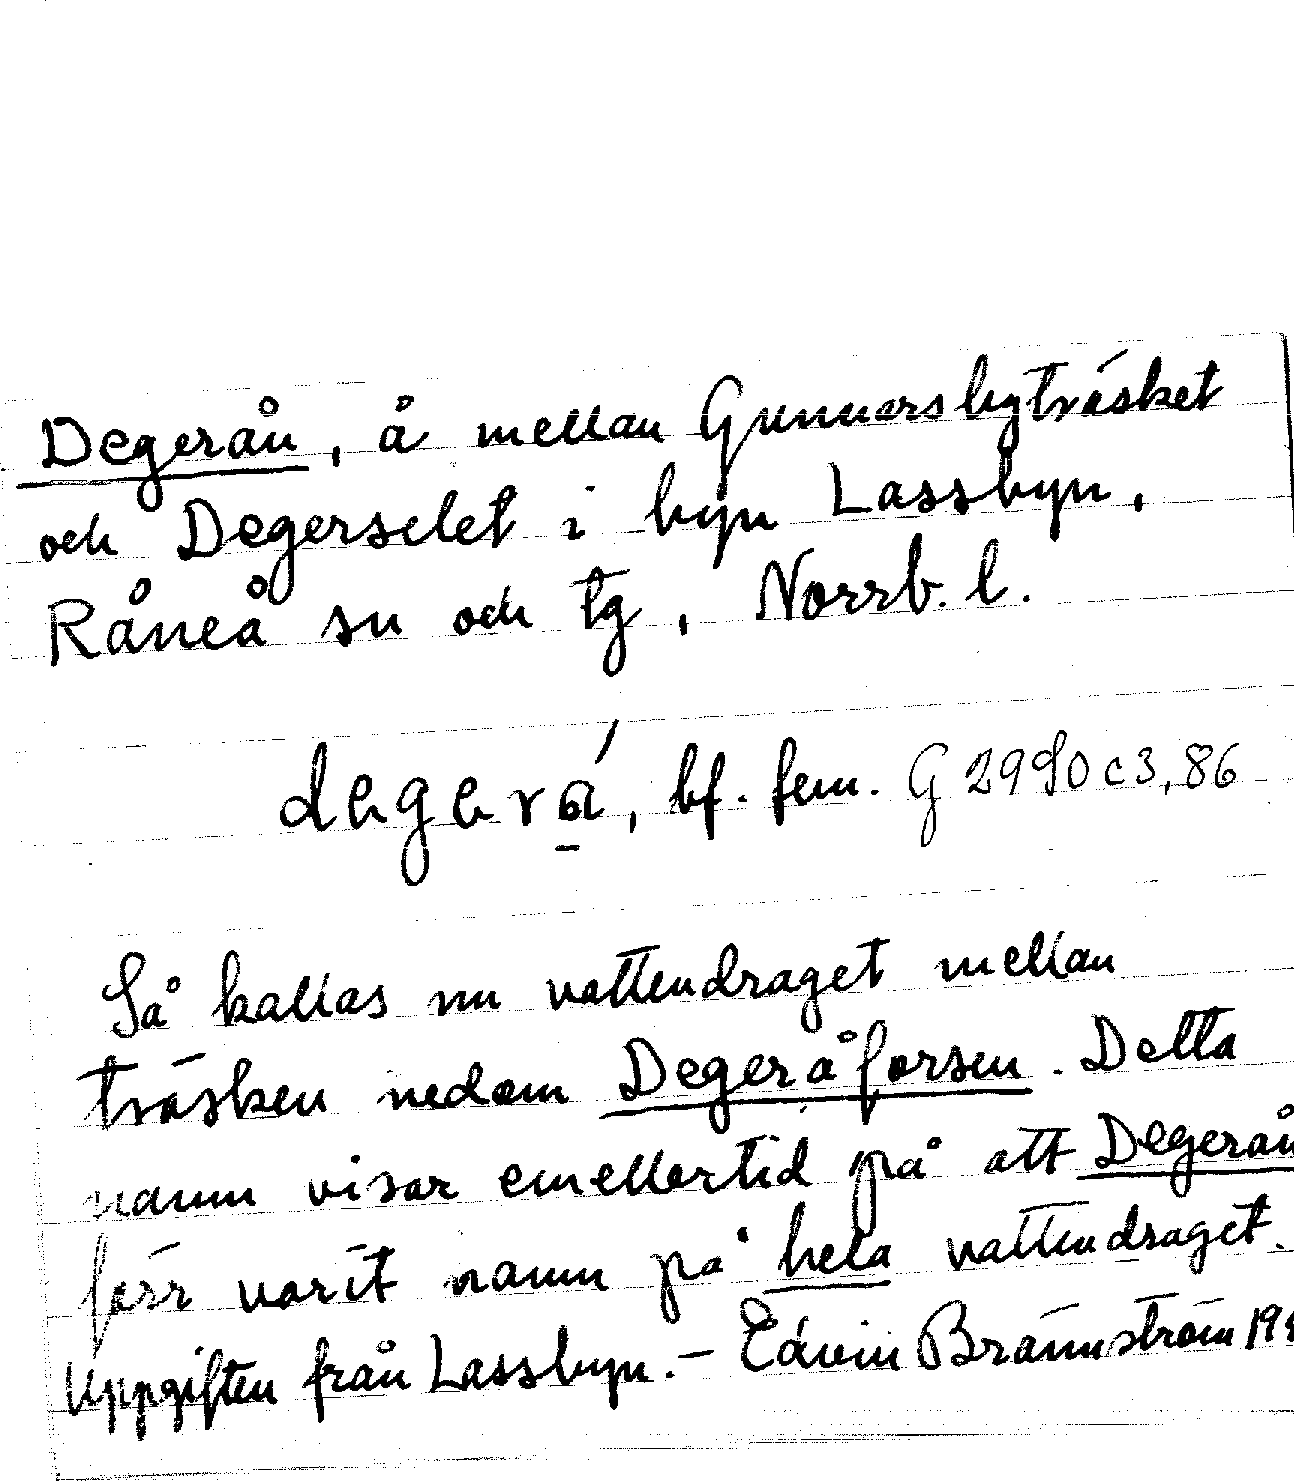 Degerån, å mellan Gunnarsbyträsket
och Degerselet i byn Lassbyn,
Råneå sn och tg, Norrb. l.
degerá̱, bf. fem. G 2990 c3, 86
Så kallas nu vattendraget mellan
träsken nedom Degeråforsen. Detta
namn visar emellertid på att Degerån
förr varit namn på hela vattendraget.
Uppgiften från Lassbyn. – Edvin Brännström